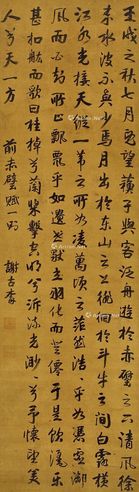 壬戌之秋七月既望蘇子與客泛舟遊於赤壁之下清風徐
來水波不興少焉月出於東山之上徘徊於斗牛之間白露橫
江水光接天縱一葦之所如凌萬頃之茫然浩浩乎如憑虛御
風而不知所止飄飄乎如遺世獨立羽化而登僊于是飲酒樂
甚扣舷而歌曰桂棹兮蘭槳擊空明兮泝流光渺渺兮予懷望美
人兮天一方
前赤壁賦一節
謝古